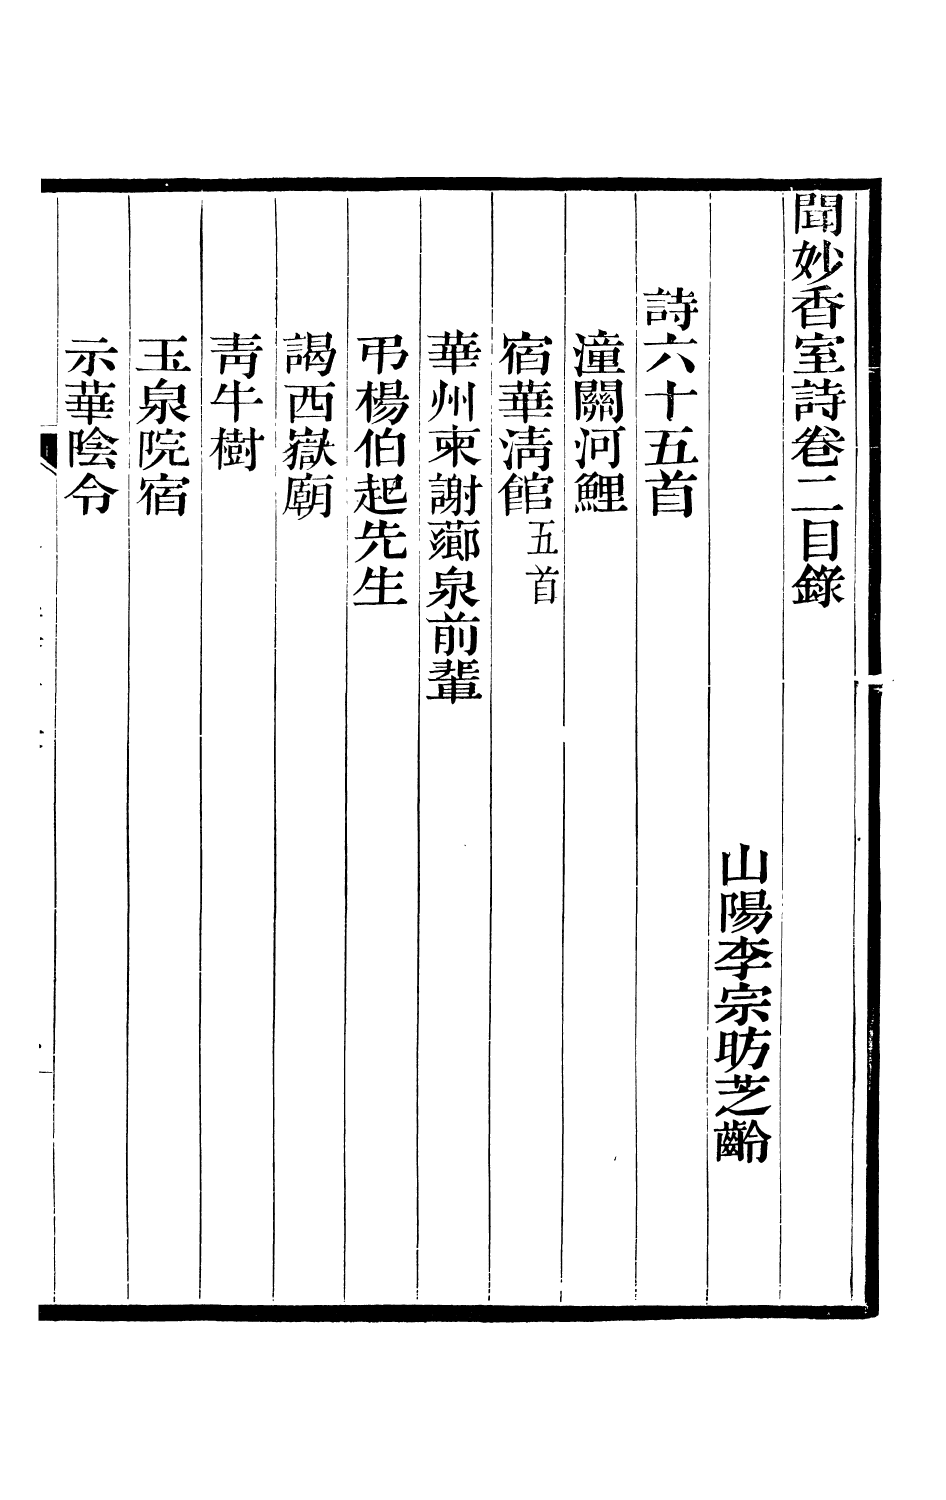 聞妙香室詩卷二目錄
山陽李宗昉芝齡
詩六十五首
潼關河鯉
宿華淸館五首
華州柬謝薌泉前輩
弔楊伯起先生
謁西嶽廟
靑牛樹
玉泉院宿
示華陰令